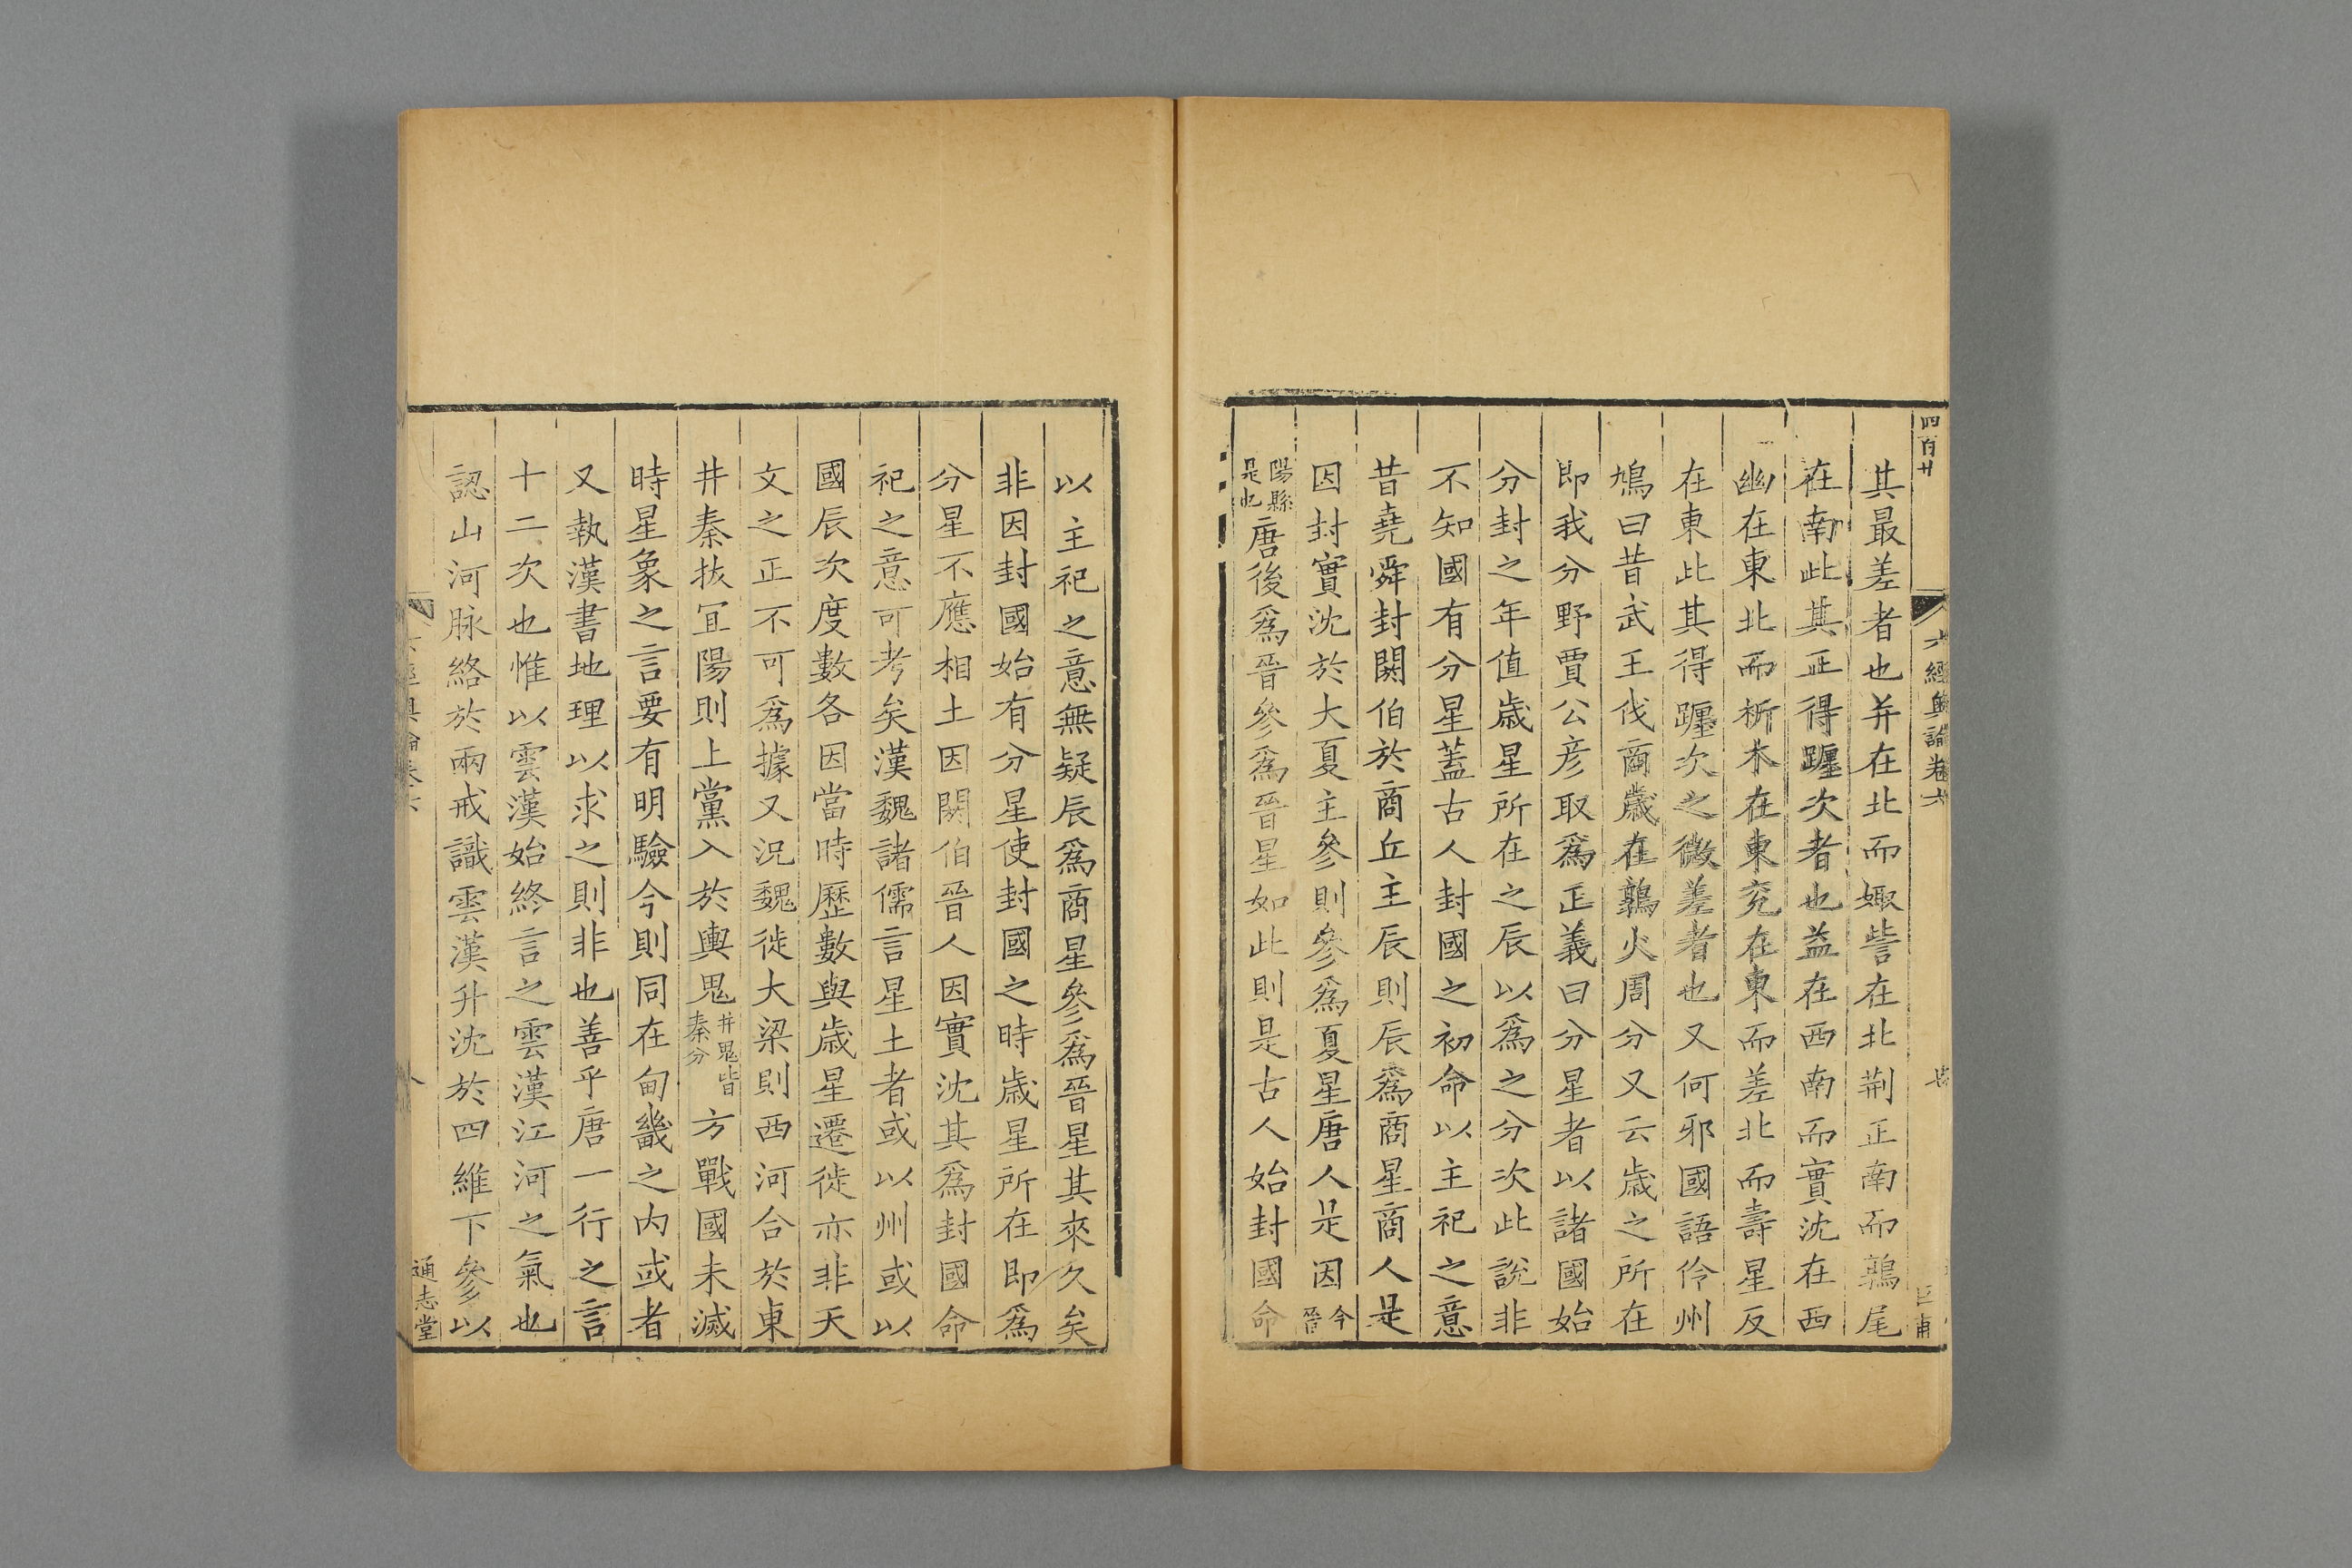 四百廿
六經奧論卷六
其最差者也并在北而娵訾在北荆正南而鶉尾
在南此其正得躔次者也益在西南而實沈在西
幽在東北而析木在東兖在東而差北而壽星反
在東此其得躔次之微差者也又何邪國語伶州
鳩曰昔武王伐商歲在鶉火周分又云歲之所在
即我分野賈公彦取爲正義曰分星者以諸國始
分封之年值歲星所在之辰以爲之分次此說非
不知國有分星蓋古人封國之初命以主祀之意
昔堯舜封閼伯於商丘主辰則辰爲商星商人是
因封實沈於大夏主參則參爲夏星唐人是因今晉
陽縣是也唐後爲晉參爲晉星如此則是古人始封國命
以主祀之意無疑辰爲商星參爲晉星其來久矣
非因封國始有分星使封國之時歲星所在即爲
分星不應相土因閼伯晉人因實沈其爲封國命
祀之意可考矣漢魏諸儒言星土者或以州或以
國辰次度數各因當時歷數與歲星遷徙亦非天
文之正不可爲據又況魏徙大梁則西河合於東
井秦拔宜陽則上黨入於輿鬼井鬼皆秦分方戰國未滅
時星象之言要有明驗今則同在甸畿之内或者
又執漢書地理以求之則非也善乎唐一行之言
十二次也惟以雲漢始終言之雲漢江河之氣也
認山河脉絡於兩戒識雲漢升沈於四維下參以
通志堂